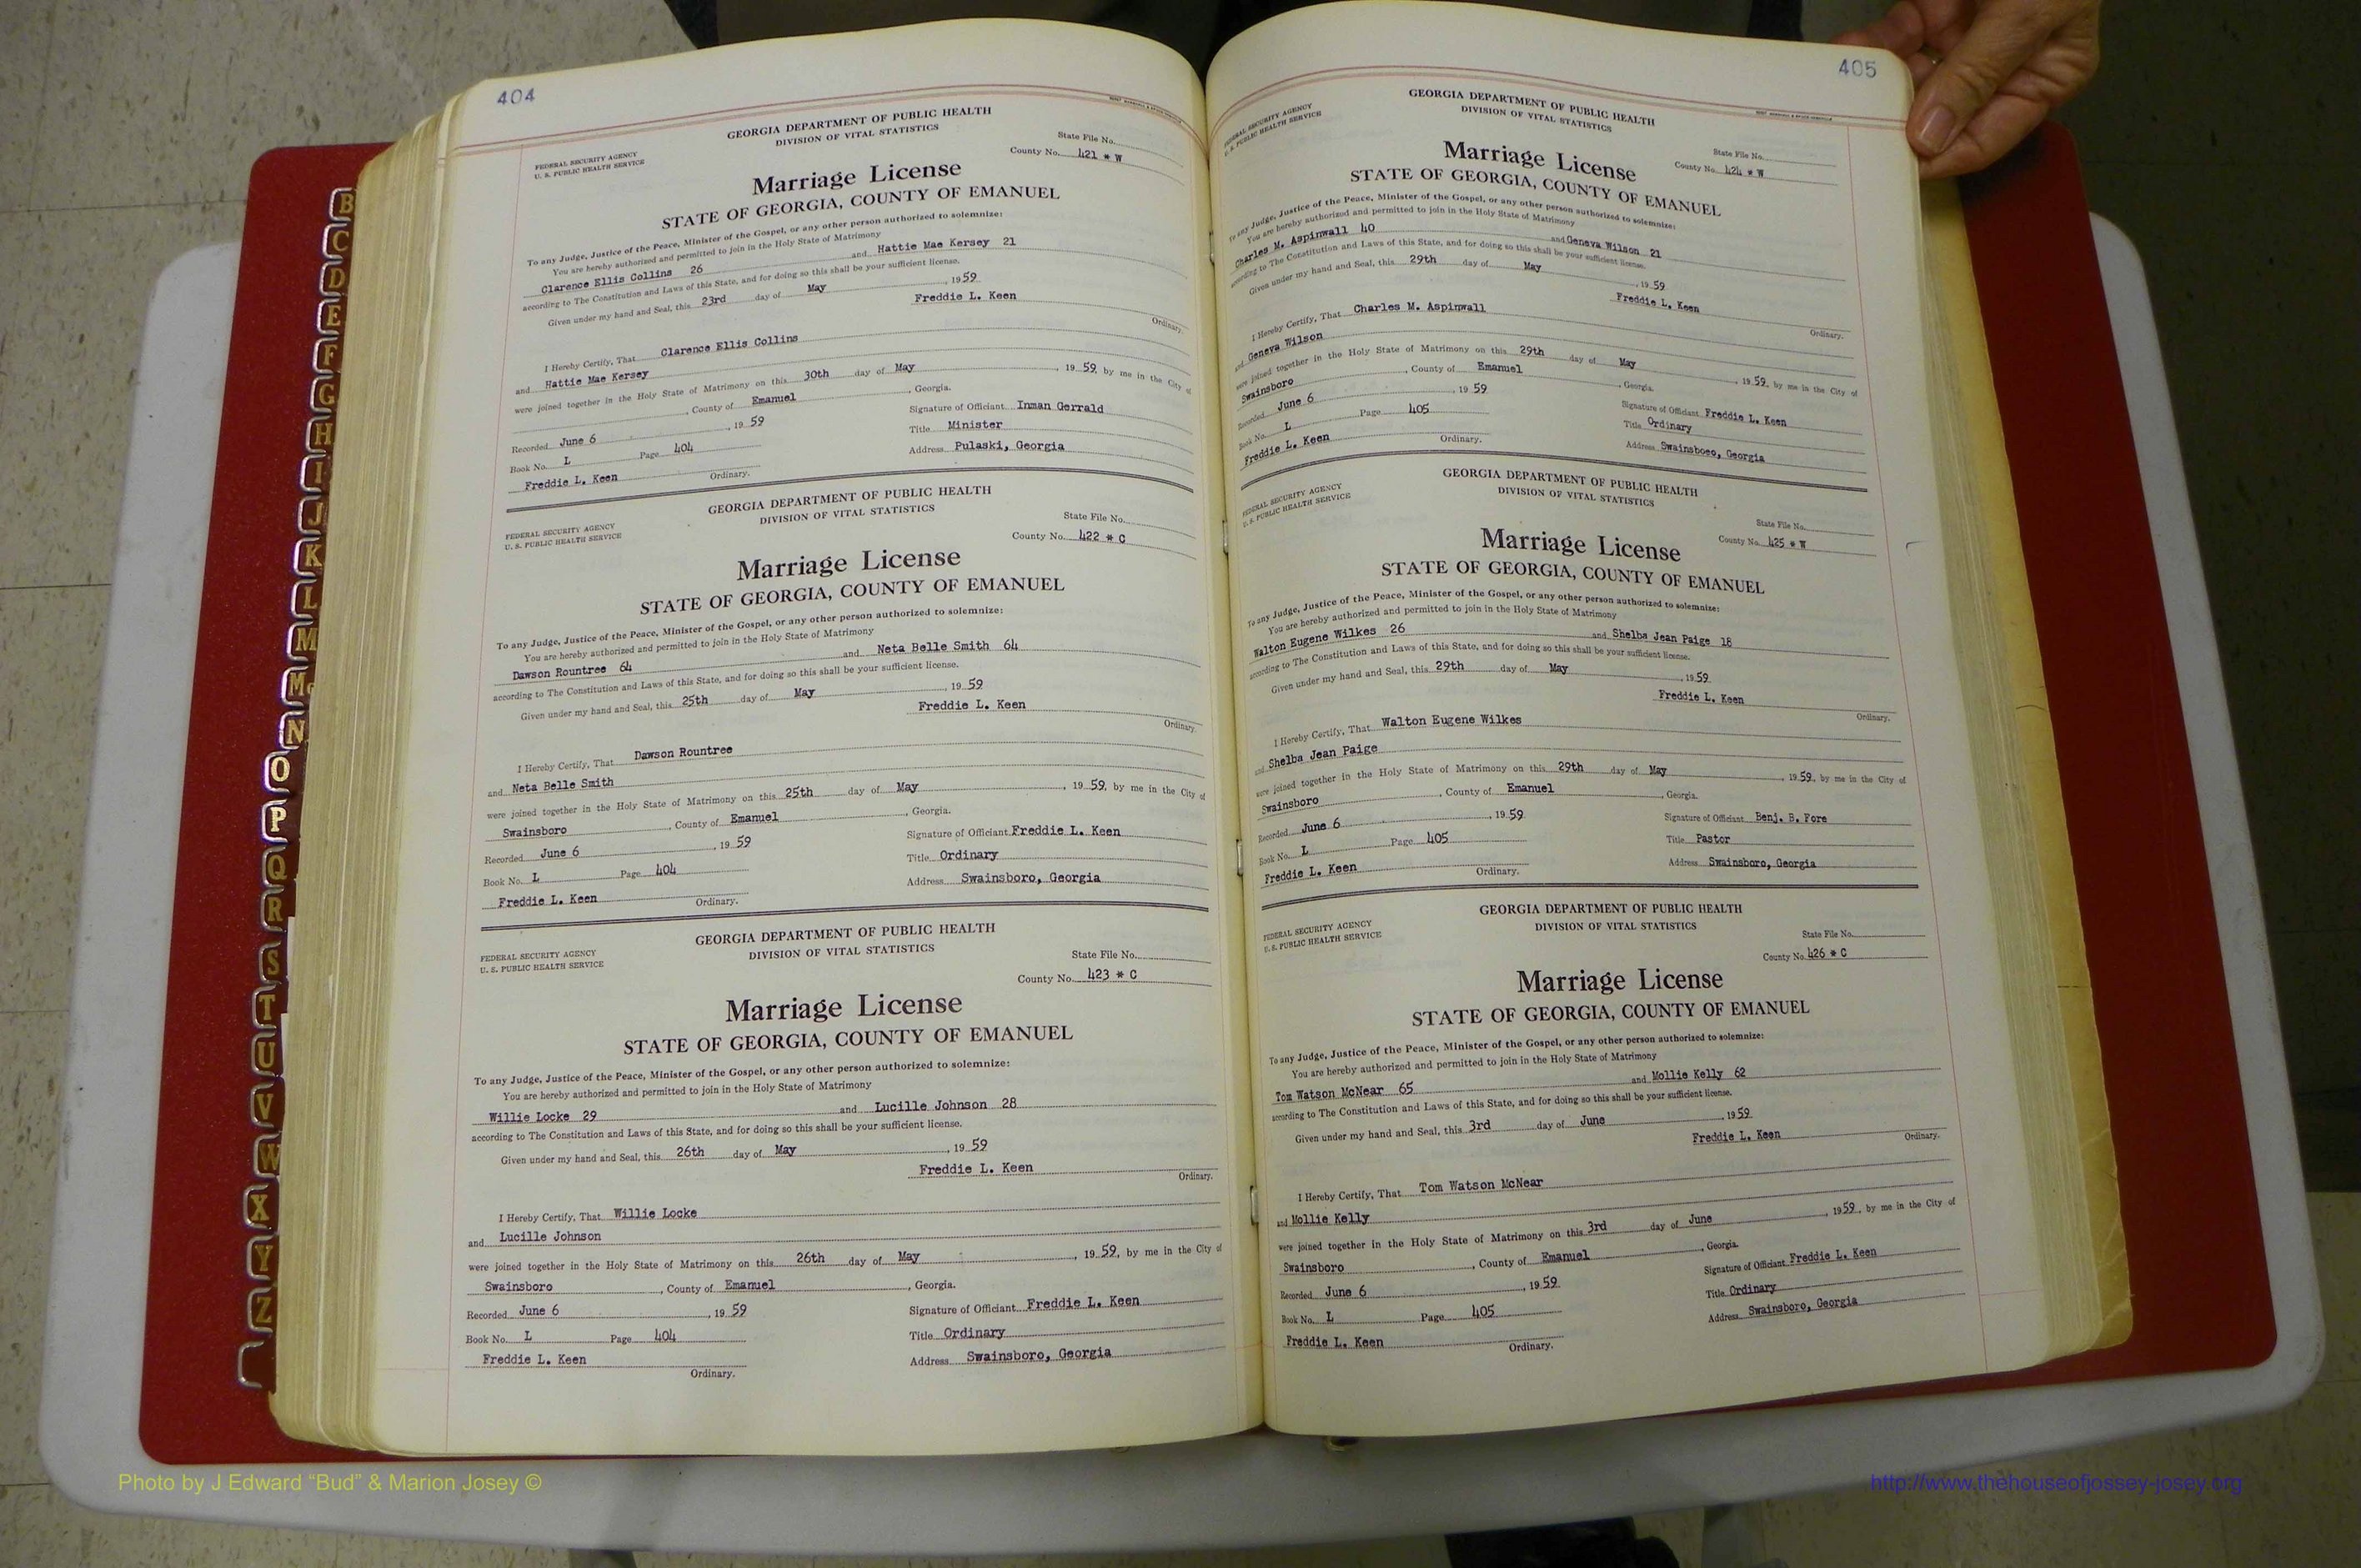 404
GEORGIA DEPARTMENT OF PUBLIC HEALTH
DIVISION OF VITAL STATISTICS
FEDERAL SECURITY AGENCY
U. S. PUBLIC HEALTH SERVICE
State File No.
County No. 421 * W
Marriage License
STATE OF GEORGIA, COUNTY OF EMANUEL
To any Judge, Justice of the Peace, Minister of the Gospel, or any other person authorized to solemnize:
You are hereby authorized and permitted to join in the Holy State of Matrimony
Clarence Ellis Collins 26 and Hattie Mae Kersey 21
according to The Constitution and Laws of this State, and for doing so this shall be your sufficient license.
Given under my hand and Seal, this 23rd day of May, 19 59
Freddie L. Keen
Ordinary.
I Hereby Certify, That Clarence Ellis Collins
and Hattie Mae Kersey
were joined together in the Holy State of Matrimony on this 30th day of May, 19 59, by me in the City of
, County of Emanuel, Georgia.
Recorded June 6, 19 59
Signature of Officiant Inman Gerrald
Book No. L Page 404
Title Minister
Freddie L. Keen Ordinary.
Address Pulaski, Georgia
GEORGIA DEPARTMENT OF PUBLIC HEALTH
DIVISION OF VITAL STATISTICS
FEDERAL SECURITY AGENCY
U. S. PUBLIC HEALTH SERVICE
State File No.
County No. 422 * C
Marriage License
STATE OF GEORGIA, COUNTY OF EMANUEL
To any Judge, Justice of the Peace, Minister of the Gospel, or any other person authorized to solemnize:
You are hereby authorized and permitted to join in the Holy State of Matrimony
Dawson Rountree 64 and Neta Belle Smith 64
according to The Constitution and Laws of this State, and for doing so this shall be your sufficient license.
Given under my hand and Seal, this 25th day of May, 19 59
Freddie L. Keen
Ordinary.
I Hereby Certify, That Dawson Rountree
and Neta Belle Smith
were joined together in the Holy State of Matrimony on this 25th day of May, 19 59, by me in the City of
Swainsboro, County of Emanuel, Georgia.
Recorded June 6, 19 59
Signature of Officiant Freddie L. Keen
Book No. L Page 404
Title Ordinary
Freddie L. Keen Ordinary.
Address Swainsboro, Georgia
GEORGIA DEPARTMENT OF PUBLIC HEALTH
DIVISION OF VITAL STATISTICS
FEDERAL SECURITY AGENCY
U. S. PUBLIC HEALTH SERVICE
State File No.
County No. 423 * C
Marriage License
STATE OF GEORGIA, COUNTY OF EMANUEL
To any Judge, Justice of the Peace, Minister of the Gospel, or any other person authorized to solemnize:
You are hereby authorized and permitted to join in the Holy State of Matrimony
Willie Locke 29 and Lucille Johnson 28
according to The Constitution and Laws of this State, and for doing so this shall be your sufficient license.
Given under my hand and Seal, this 26th day of May, 19 59
Freddie L. Keen
Ordinary.
I Hereby Certify, That Willie Locke
and Lucille Johnson
were joined together in the Holy State of Matrimony on this 26th day of May, 19 59, by me in the City of
Swainsboro, County of Emanuel, Georgia.
Recorded June 6, 19 59
Signature of Officiant Freddie L. Keen
Book No. L Page 404
Title Ordinary
Freddie L. Keen
Address Swainsboro, Georgia
Ordinary.
405
GEORGIA DEPARTMENT OF PUBLIC HEALTH
DIVISION OF VITAL STATISTICS
FEDERAL SECURITY AGENCY
U. S. PUBLIC HEALTH SERVICE
State File No.
County No. 424 * W
Marriage License
STATE OF GEORGIA, COUNTY OF EMANUEL
To any Judge, Justice of the Peace, Minister of the Gospel, or any other person authorized to solemnize:
You are hereby authorized and permitted to join in the Holy State of Matrimony
Charles M. Aspinwall 40 and Geneva Wilson 21
according to The Constitution and Laws of this State, and for doing so this shall be your sufficient license.
Given under my hand and Seal, this 29th day of May, 19 59
Freddie L. Keen
Ordinary.
I Hereby Certify, That Charles M. Aspinwall
and Geneva Wilson
were joined together in the Holy State of Matrimony on this 29th day of May, 19 59, by me in the City of
Swainsboro, County of Emanuel, Georgia.
Recorded June 6, 19 59
Signature of Officiant Freddie L. Keen
Book No. L Page 405
Title Ordinary
Freddie L. Keen Ordinary.
Address Swainsboeo, Georgia
GEORGIA DEPARTMENT OF PUBLIC HEALTH
DIVISION OF VITAL STATISTICS
FEDERAL SECURITY AGENCY
U. S. PUBLIC HEALTH SERVICE
State File No.
County No. 425 * W
Marriage License
STATE OF GEORGIA, COUNTY OF EMANUEL
To any Judge, Justice of the Peace, Minister of the Gospel, or any other person authorized to solemnize:
You are hereby authorized and permitted to join in the Holy State of Matrimony
Walton Eugene Wilkes 26 and Shelba Jean Paige 18
according to The Constitution and Laws of this State, and for doing so this shall be your sufficient license.
Given under my hand and Seal, this 29th day of May, 19 59
Freddie L. Keen
Ordinary.
I Hereby Certify, That Walton Eugene Wilkes
and Shelba Jean Paige
were joined together in the Holy State of Matrimony on this 29th day of May, 19 59, by me in the City of
Swainsboro, County of Emanuel, Georgia.
Recorded June 6, 19 59
Signature of Officiant Benj. B. Fore
Book No. L Page 405
Title Pastor
Freddie L. Keen Ordinary.
Address Swainsboro, Georgia
GEORGIA DEPARTMENT OF PUBLIC HEALTH
DIVISION OF VITAL STATISTICS
FEDERAL SECURITY AGENCY
U. S. PUBLIC HEALTH SERVICE
State File No.
County No. 426 * C
Marriage License
STATE OF GEORGIA, COUNTY OF EMANUEL
To any Judge, Justice of the Peace, Minister of the Gospel, or any other person authorized to solemnize:
You are hereby authorized and permitted to join in the Holy State of Matrimony
Tom Watson McNear 65 and Mollie Kelly 62
according to The Constitution and Laws of this State, and for doing so this shall be your sufficient license.
Given under my hand and Seal, this 3rd day of June, 19 59
Freddie L. Keen Ordinary.
I Hereby Certify, That Tom Watson McNear
and Mollie Kelly
were joined together in the Holy State of Matrimony on this 3rd day of June, 19 59, by me in the City of
Swainsboro, County of Emanuel, Georgia.
Recorded June 6, 19 59
Signature of Officiant Freddie L. Keen
Book No. L Page 405
Title Ordinary
Freddie L. Keen Ordinary.
Address Swainsboro, Georgia
B
C
D
E
F
G
H
I
J
K
L
M
Mc
N
O
P
Q
R
S
T
U
V
W
X
Y
Z
Photo by J Edward “Bud” & Marion Josey ©
http://www.thehouseofjossey-josey.org